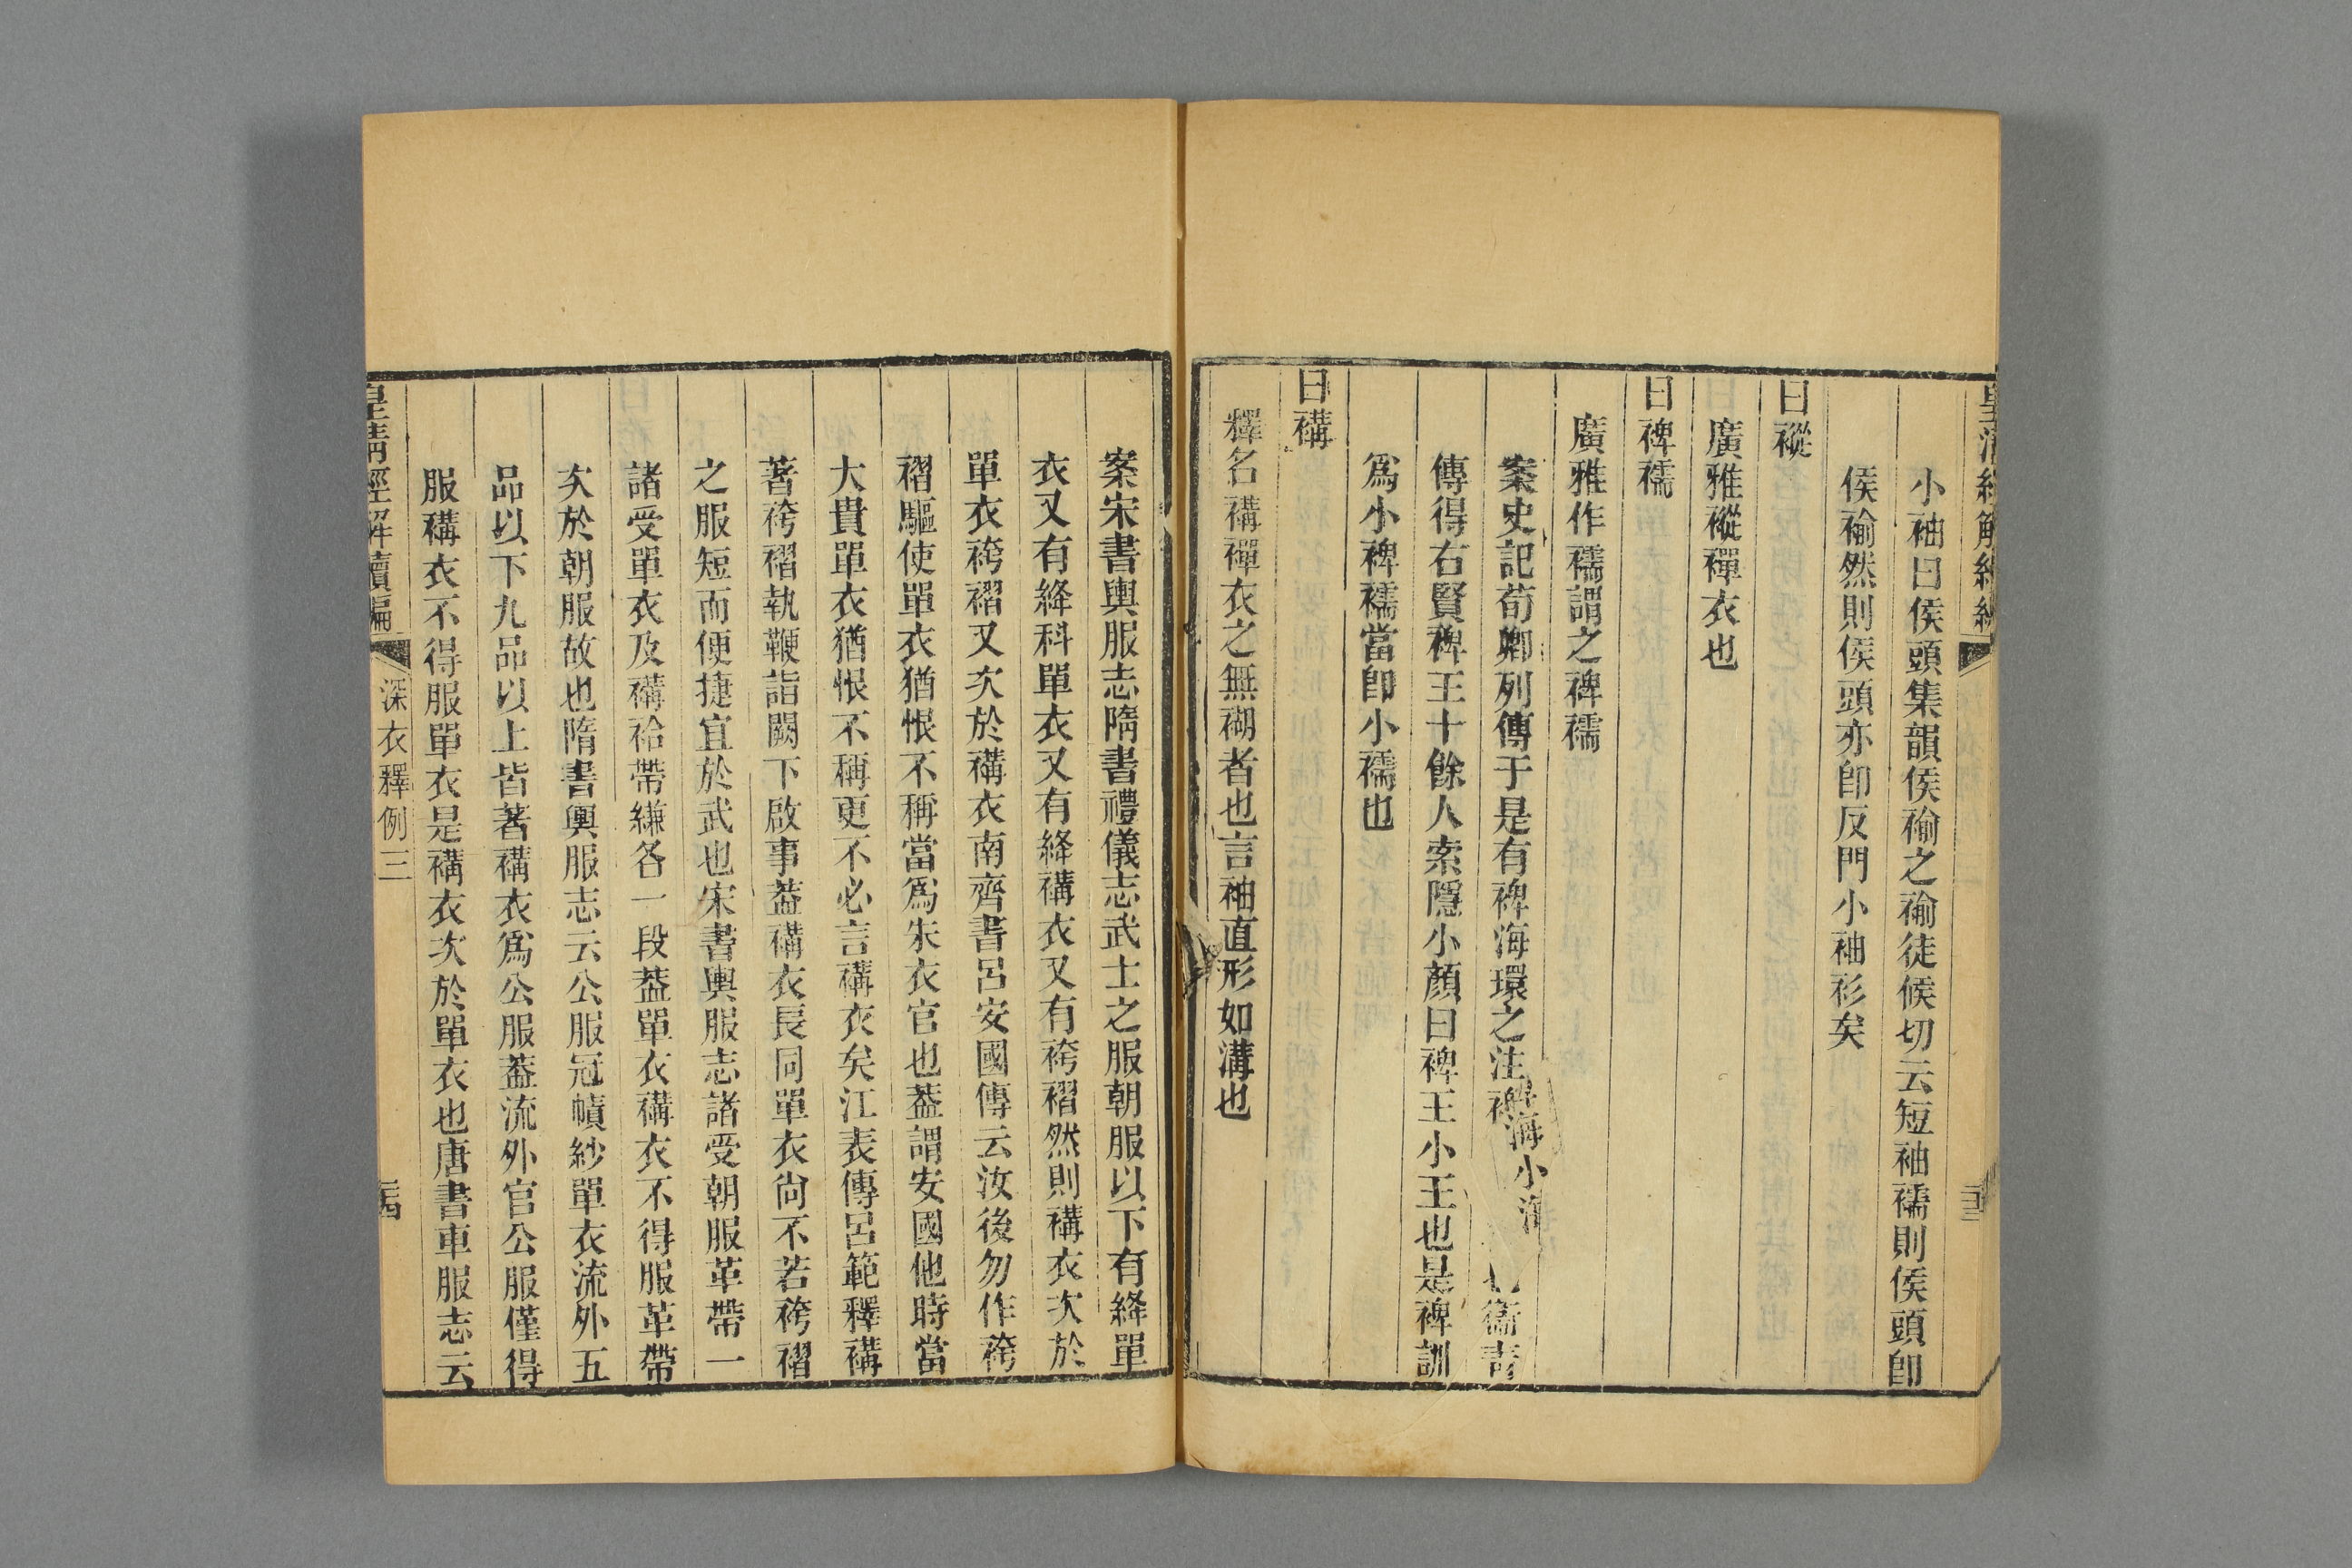 小袖曰侯頭集韻侯褕之褕徒候切云短袖襦則侯頭卽
侯褕然則侯頭亦卽反門小袖衫矣
曰褷
廣雅褷襌衣也
曰裨襦
廣雅作襦謂之裨襦
案史記荀卿列傳于是有裨海環之注裨海小海 衞青
傳得右賢裨王十餘人索隱小顏曰裨王小王也是裨訓
爲小裨襦當卽小襦也
曰褠
釋名褠襌衣之無胡者也言袖直形如溝也
案宋書輿服志隋書禮儀志武士之服朝服以下有絳單
衣又有絳科單衣又有絳褠衣又有袴褶然則褠衣次於
單衣袴褶又次於褠衣南齊書呂安國傳云汝後勿作袴
褶驅使單衣猶恨不稱當爲朱衣官也葢謂安國他時當
大貴單衣猶恨不稱更不必言褠衣矣江表傳呂範釋褠
著袴褶執鞭詣闕下啟事葢褠衣長同單衣尙不若袴褶
之服短而便捷宜於武也宋書輿服志諸受朝服革帶一
諸受單衣及褠袷帶縑各一段葢單衣褠衣不得服革帶
次於朝服故也隋書輿服志云公服冠幘紗單衣流外五
品以下九品以上皆著褠衣爲公服葢流外官公服僅得
服褠衣不得服單衣是褠衣次於單衣也唐書車服志云
皇淸經解續編
深衣釋例三